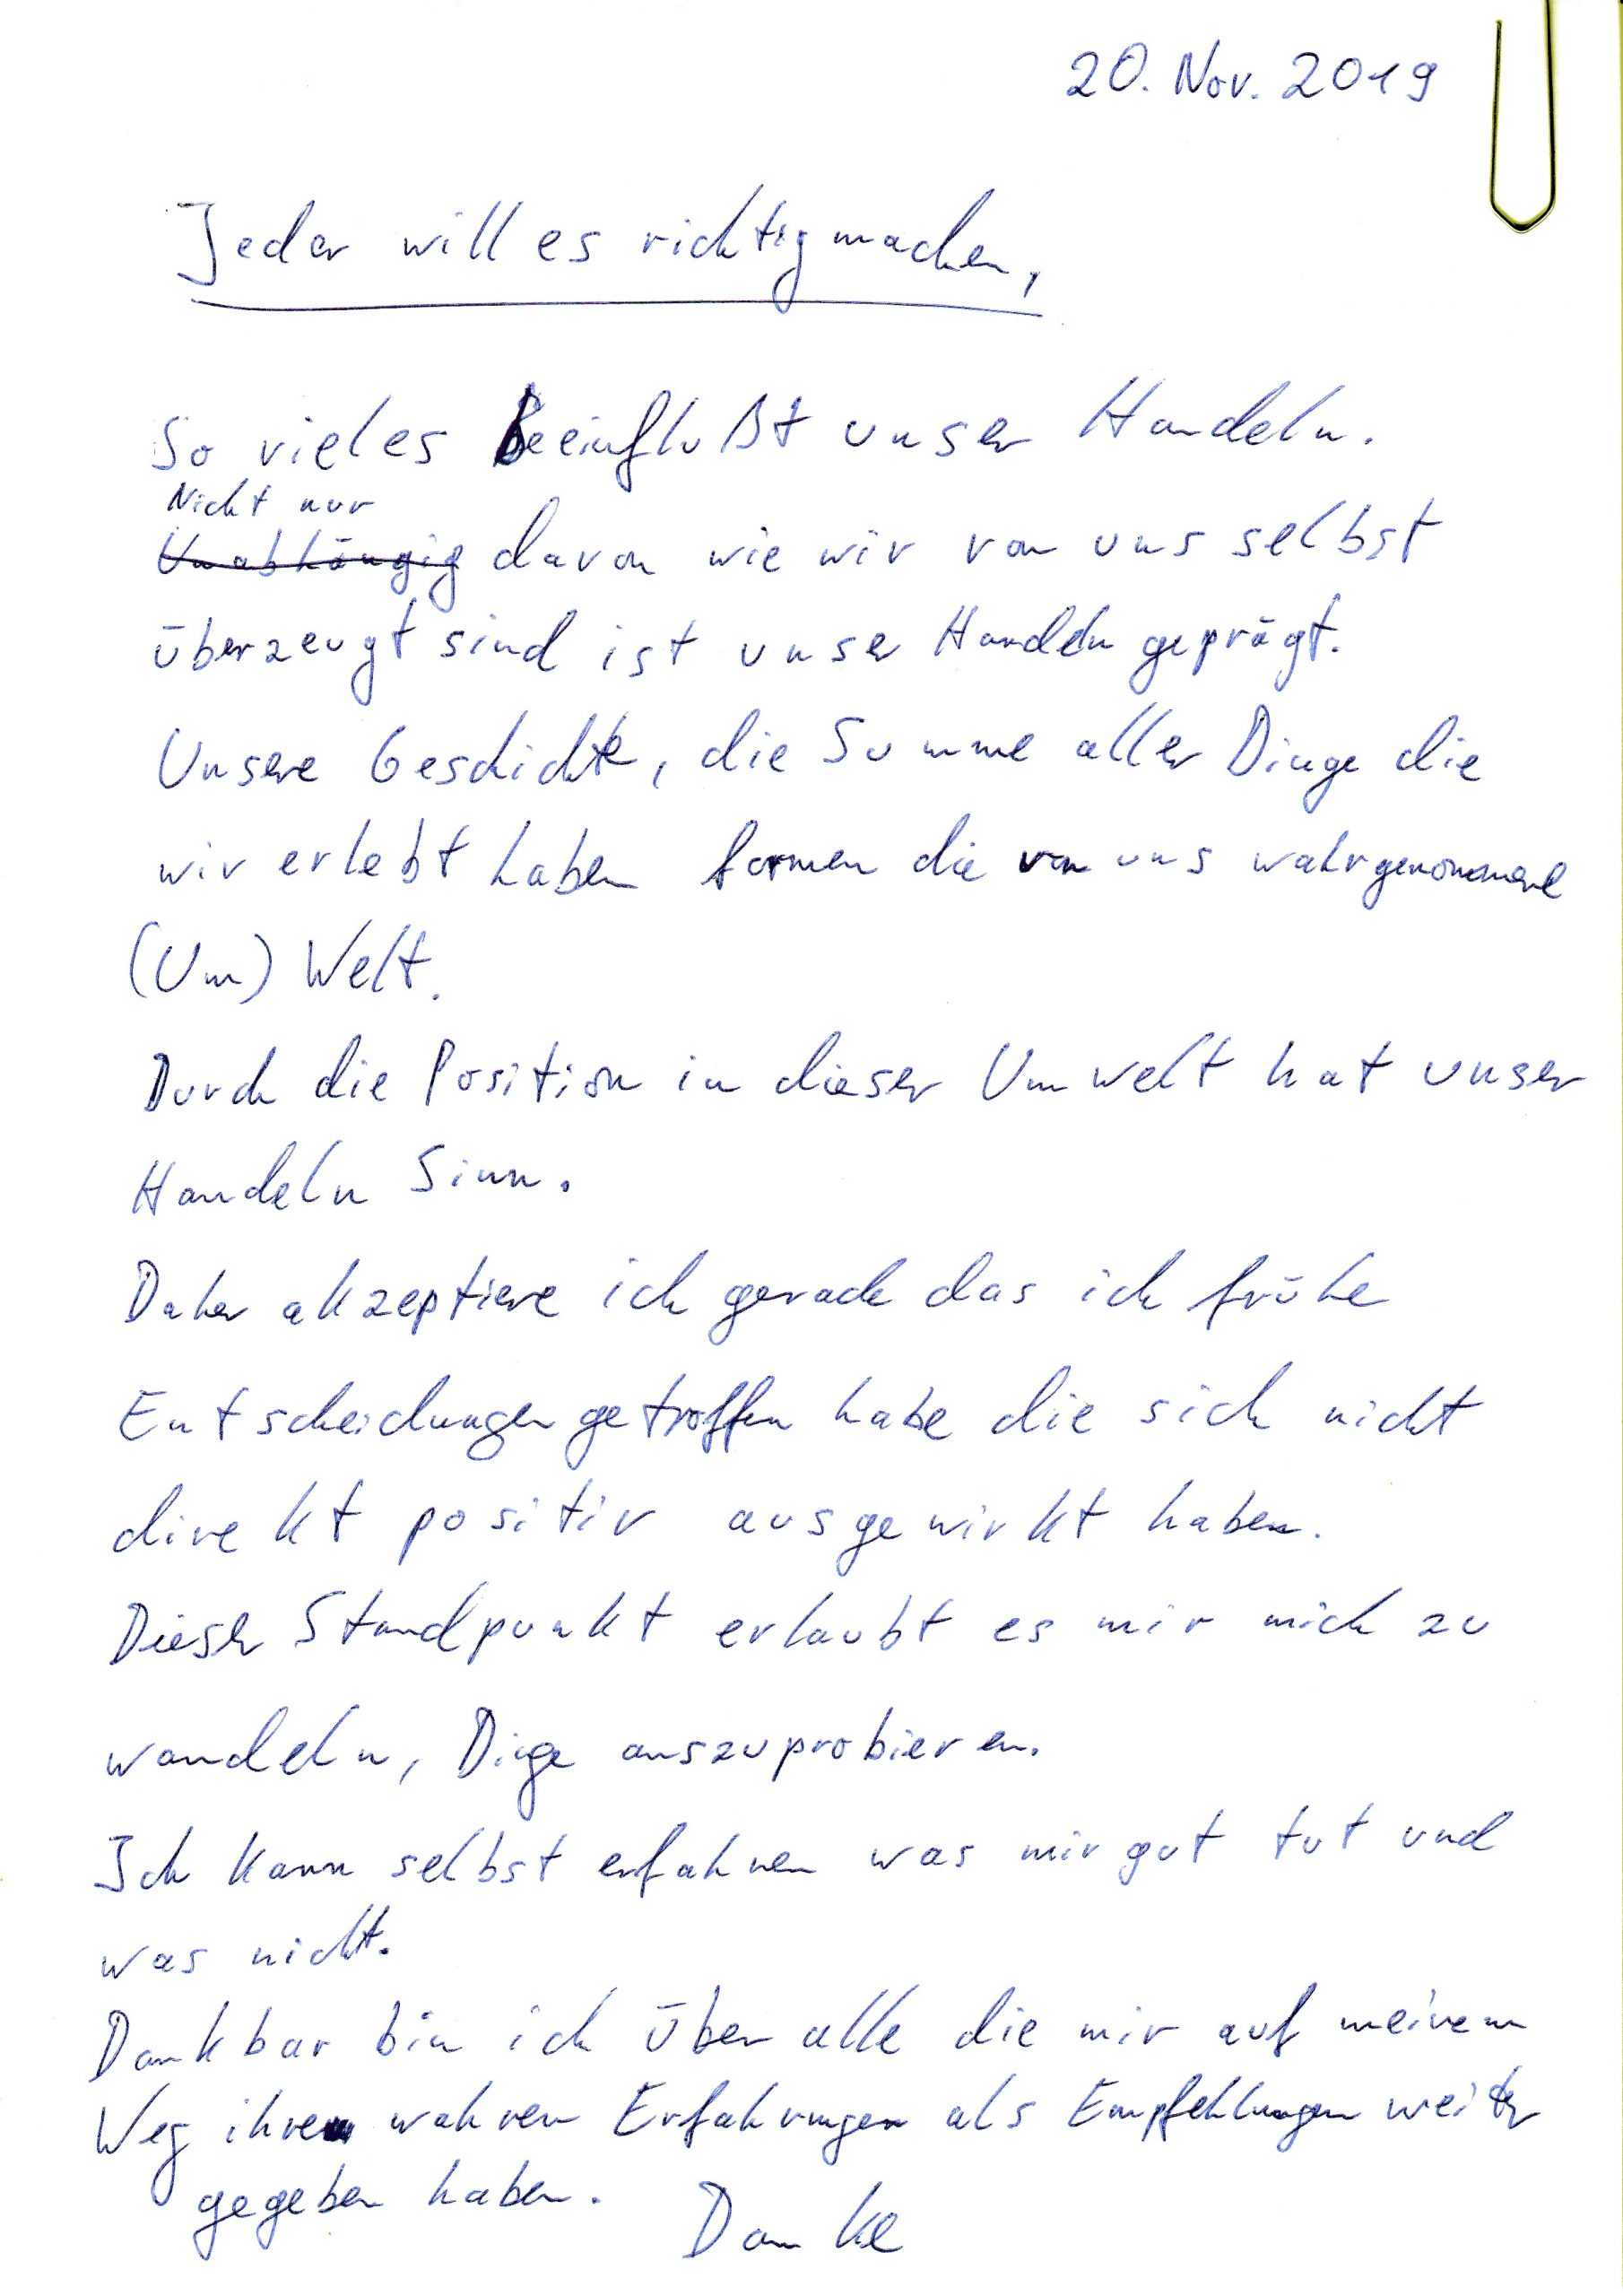 20. Nov. 2019
Jeder will es richtig machen,
So vieles beeinflußt unser Handeln.
Nicht nur
Unabhängig davon wie wir von uns selbst
überzeugt sind ist unser Handeln geprägt.
Unsere Geschichte, die Summe aller Dinge die
wir erlebt haben formen die von uns wahrgenommene
(Um) Welt.
Durch die Position in dieser Umwelt hat unser
Handeln Sinn.
Daher akzeptiere ich gerade das ich frühe
Entscheidungen getroffen habe die sich nicht
direkt positiv ausgewirkt haben.
Dieser Standpunkt erlaubt es mir mich zu
wandeln, Dinge auszuprobieren.
Ich kann selbst erfahren was mir gut tut und
was nicht.
Dankbar bin ich über alle die mir auf meinem
Weg ihren wahren Erfahrungen als Empfehlungen weiter
gegeben haben. Danke